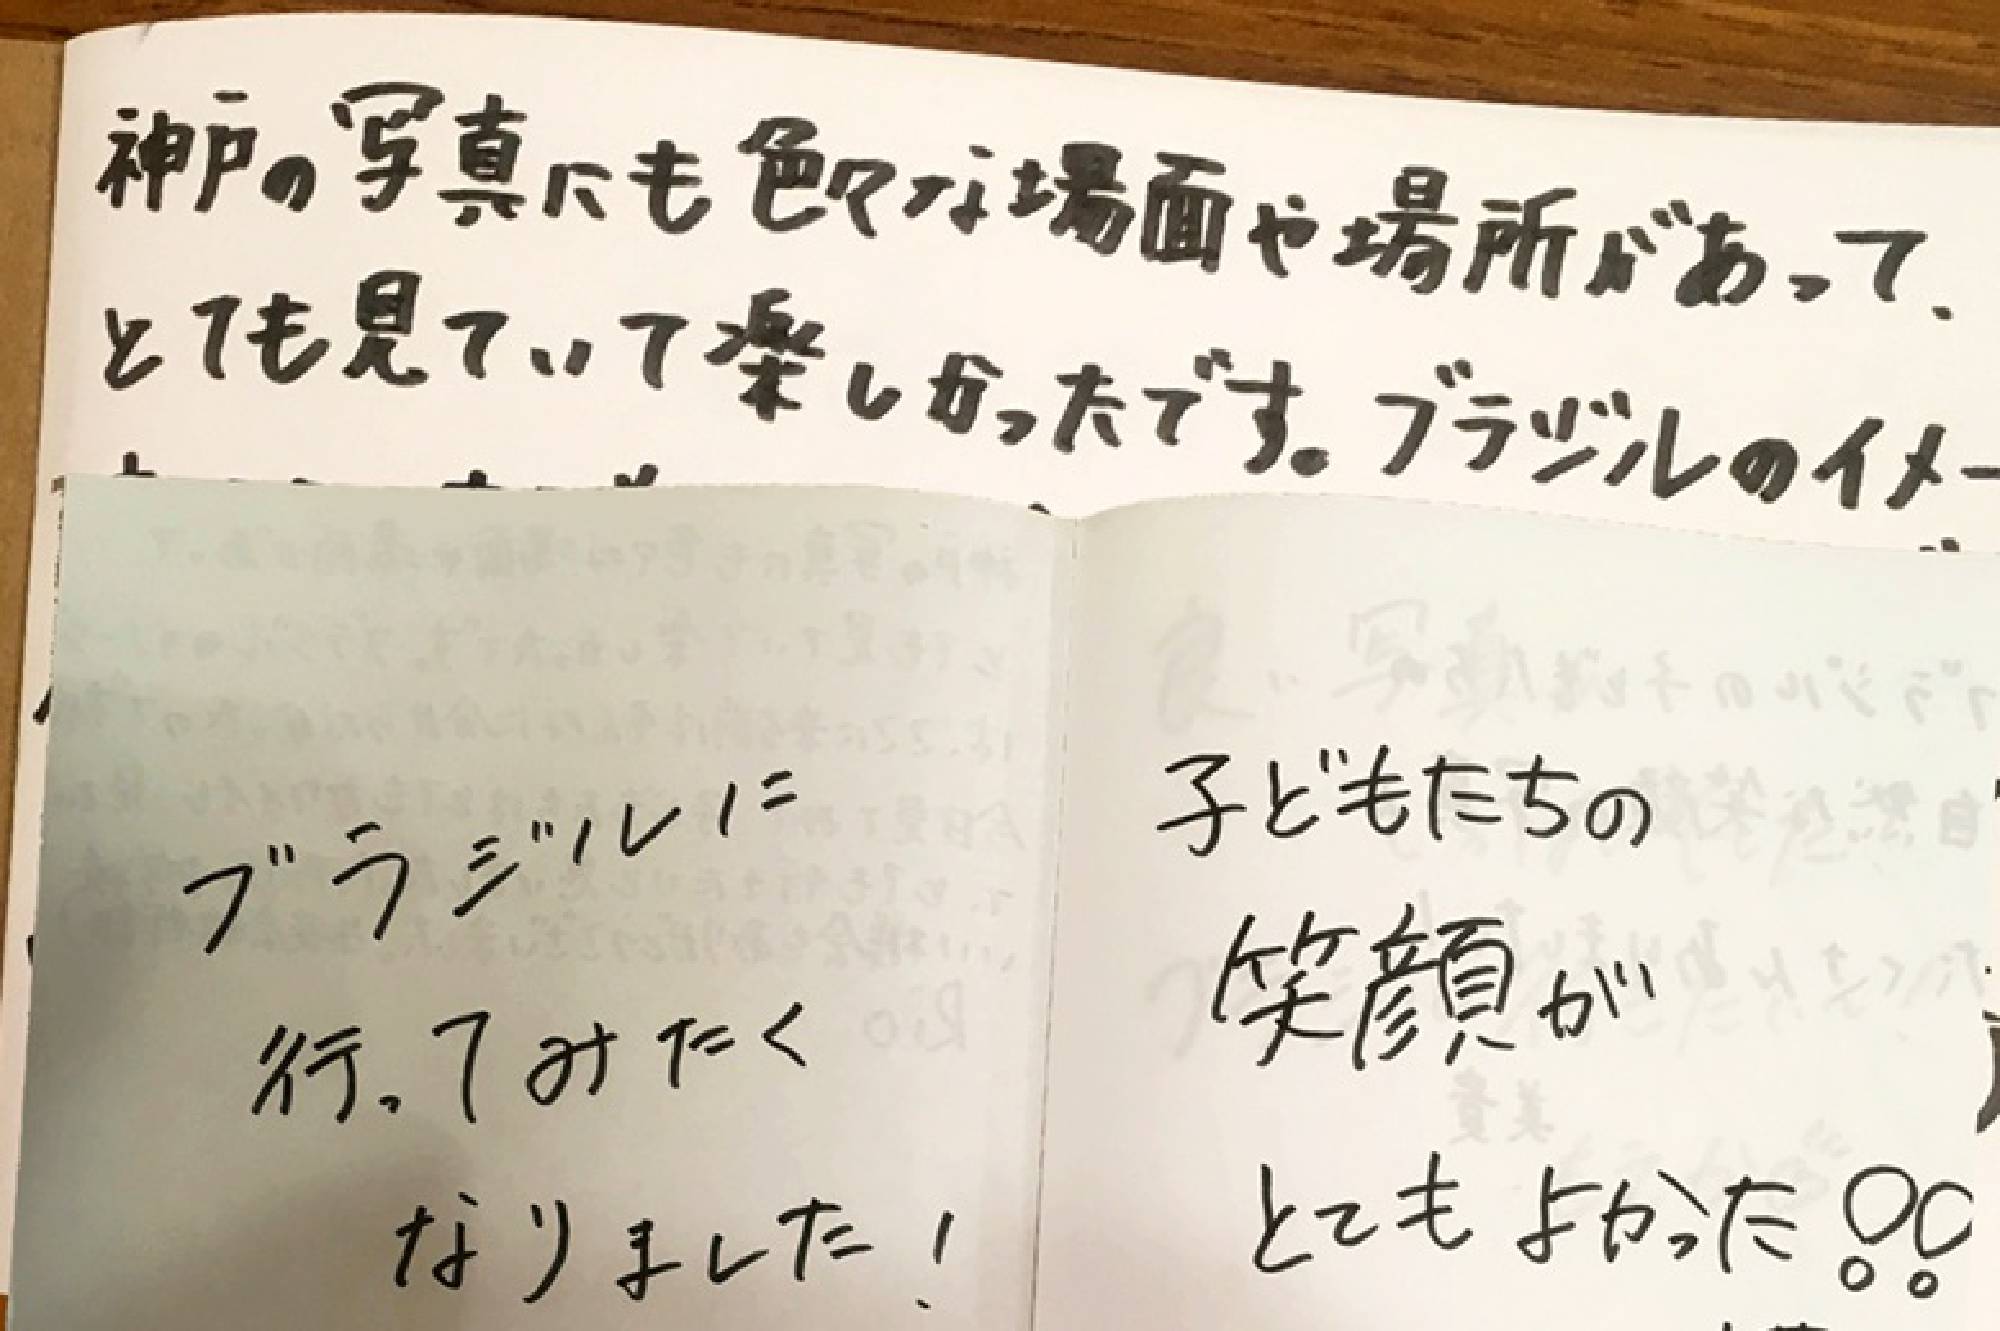 神戸の写真にも色々な場面や場所があって、
とても見ていて楽しかったです。ブラジルのイメー
ブラジルに
行ってみたく
なりました!
子どもたちの
笑顔が
とてもよかった!!